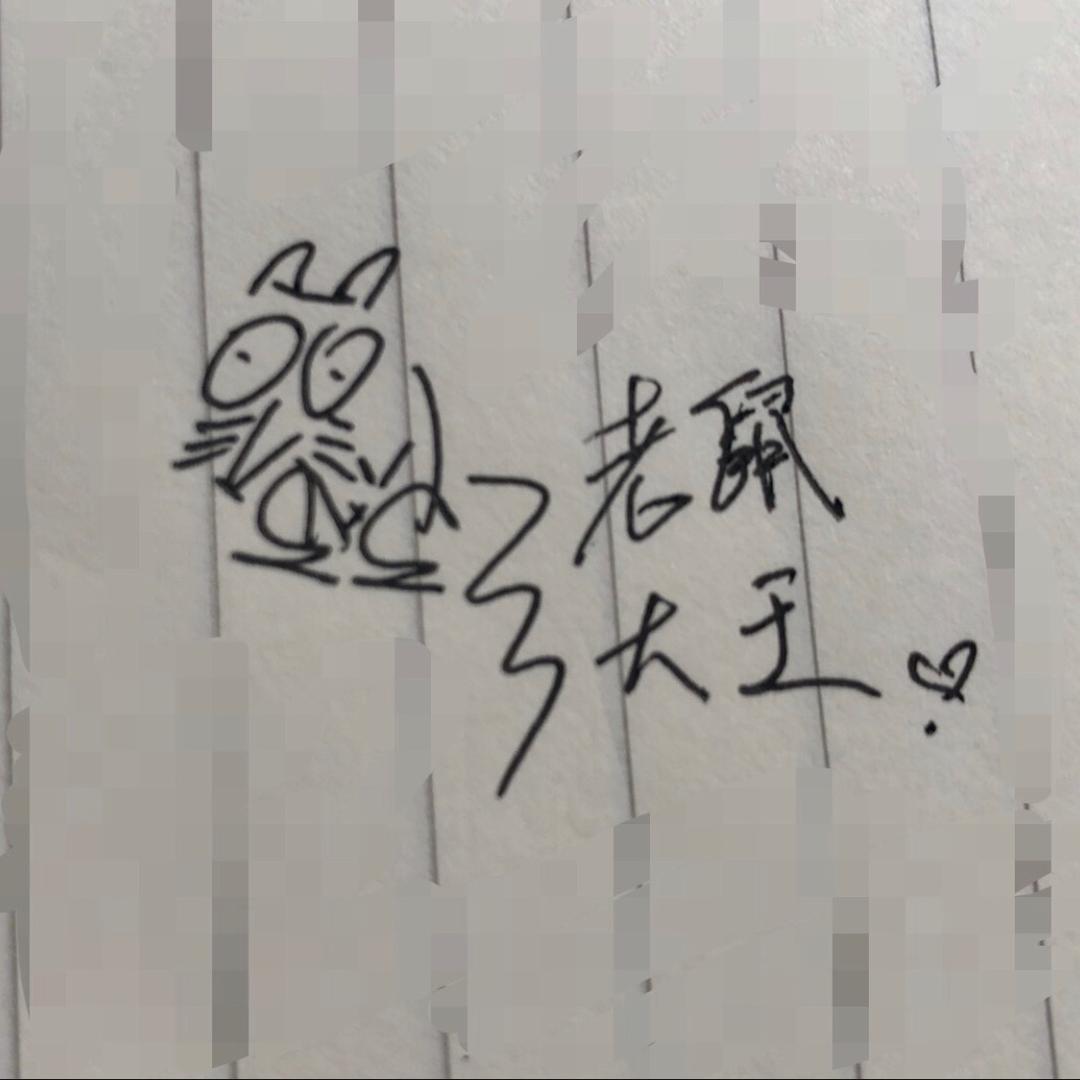 老鼠
大王